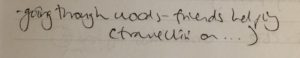 -going through woods - friends helping
(travellin on...)